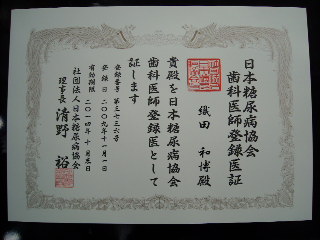 日本糖尿病協会
歯科医師登録医証
織田 和博殿
貴殿を日本糖尿病協会
歯科医師登録医として
証します
登録番号 第三七三六号
登録日 二〇〇九年十一月一日
有効期限 二〇一四年十月末日
社団法人日本糖尿病協会
理事長 清野 裕